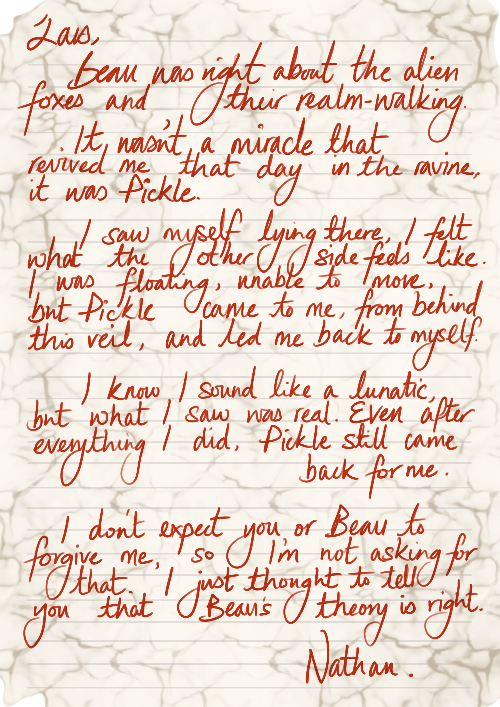 Lais,
Beau was right about the alien
foxes and their realm-walking.
It wasn't a miracle that
revived me that day in the ravine,
it was Pickle.
I saw myself lying there, I felt
what the other side feels like.
I was floating, unable to move,
but Pickle came to me, from behind
this veil, and led me back to myself.
I know I sound like a lunatic,
but what I saw was real. Even after
everything I did, Pickle still came
back for me.
I don't expect you or Beau to
forgive me, so I'm not asking for
that. I just thought to tell
you that Beau's theory is right.
Nathan.